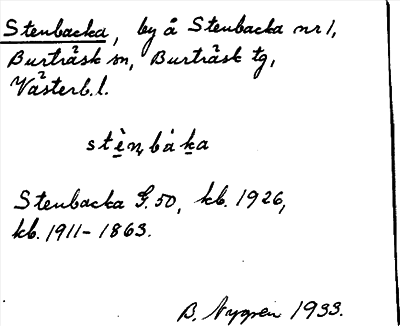 Stenbacka, by å Stenbacka nr 1,
Burträsk sn, Burträsk tg,
Västerb.l.
stè̱n̥båḵa
Stenbacka G.50, kb. 1926,
kb. 1911-1863.
B. Nygren 1933.